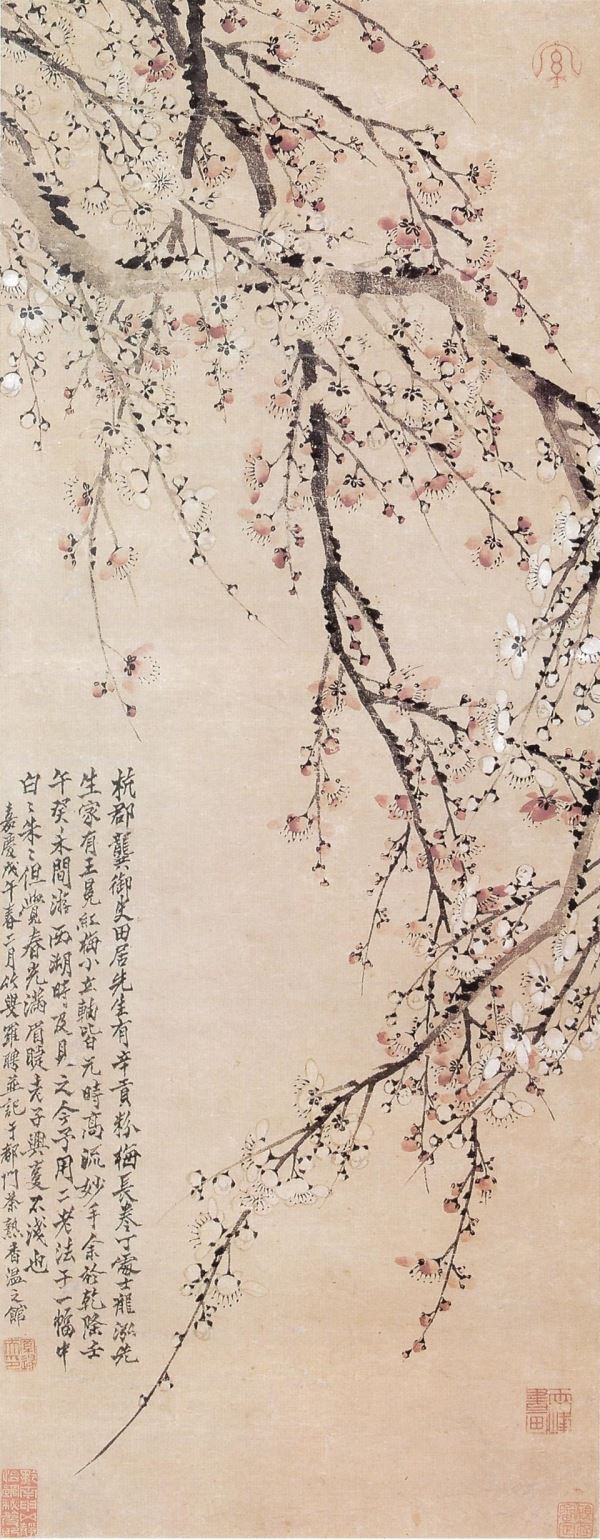 杭郡龔御史田居先生有辛貢粉梅長卷丁處士龍泓先
生家有王冕紅梅小立軸皆元時高流妙手余於乾隆壬
午癸未間游西湖時及見之今予用二老法于一幅中
白白朱朱但覺春光滿眉睫老子興复不淺也
嘉慶戊午春二月竹叟羅聘並記于都門茶熟香溫之館
兩峰
書畫